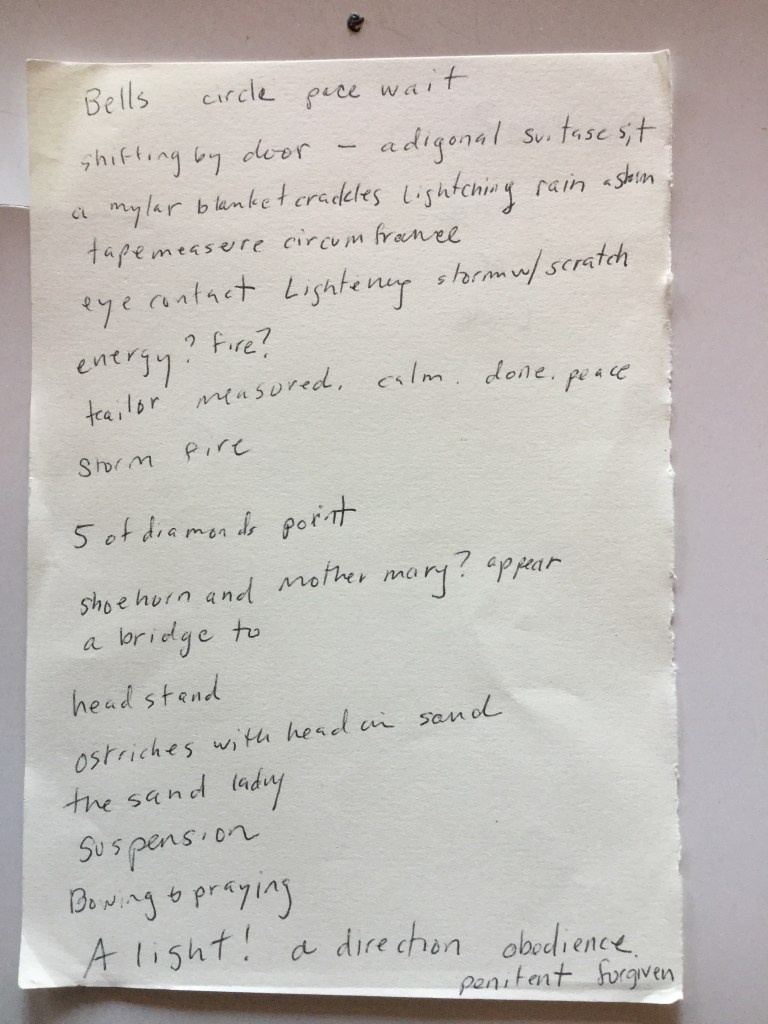 Bells circle pace wait
shifting by door - a digonal suitase sit
a mylar blanket crackles Lightching rain a storm
tapemeasere circumfrance
eye contact Lightening storm w/ scratch
energy? Fire?
tailor measured. calm. done. peace
storm fire
5 of diamonds point
shoehorn and Mother mary? appear
a bridge to
headstand
ostriches with head in sand
the sand lady
suspension
Bowing & praying
A light! a direction obedience.
penitent forgiven